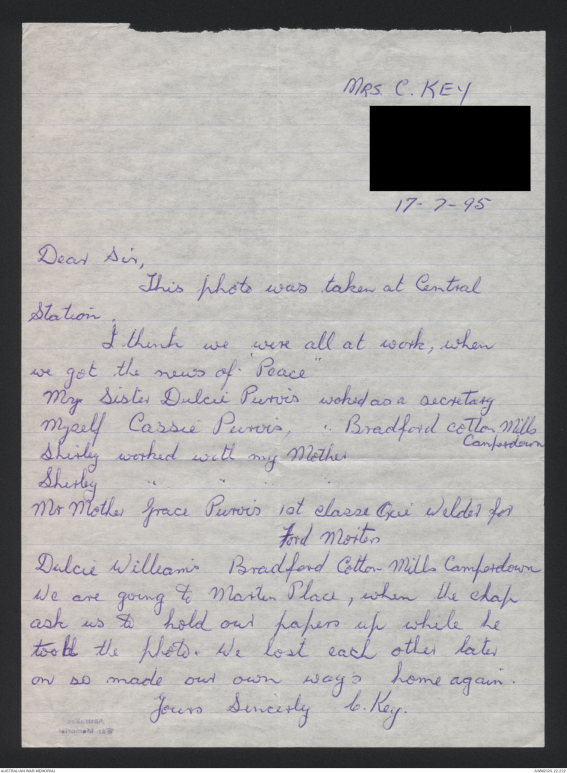 MRS. C. KEY
17-7-95
Dear Sir,
This photo was taken at Central
Station.
I think we were all at work, when
we got the news of "Peace"
My Sister Dulcie Purvis woked as a secretary
Myself Cassie Purvis, " Bradford cotton Mills
Camperdown
Shirly worked with my Mother
Shirley " " " "
Mr Mother Grace Purvis 1st classe Oxie Welder for
Ford Moters
Dulcie Williams Bradford Cotton Mills Camperdown
We are going to Martin Place, when the chap
ask us to hold our papers up while he
took the photo. We lost each other later
on so made our own ways home again.
Yours Sincerly C. Key.
AUSTRALIAN WAR MEMORIAL